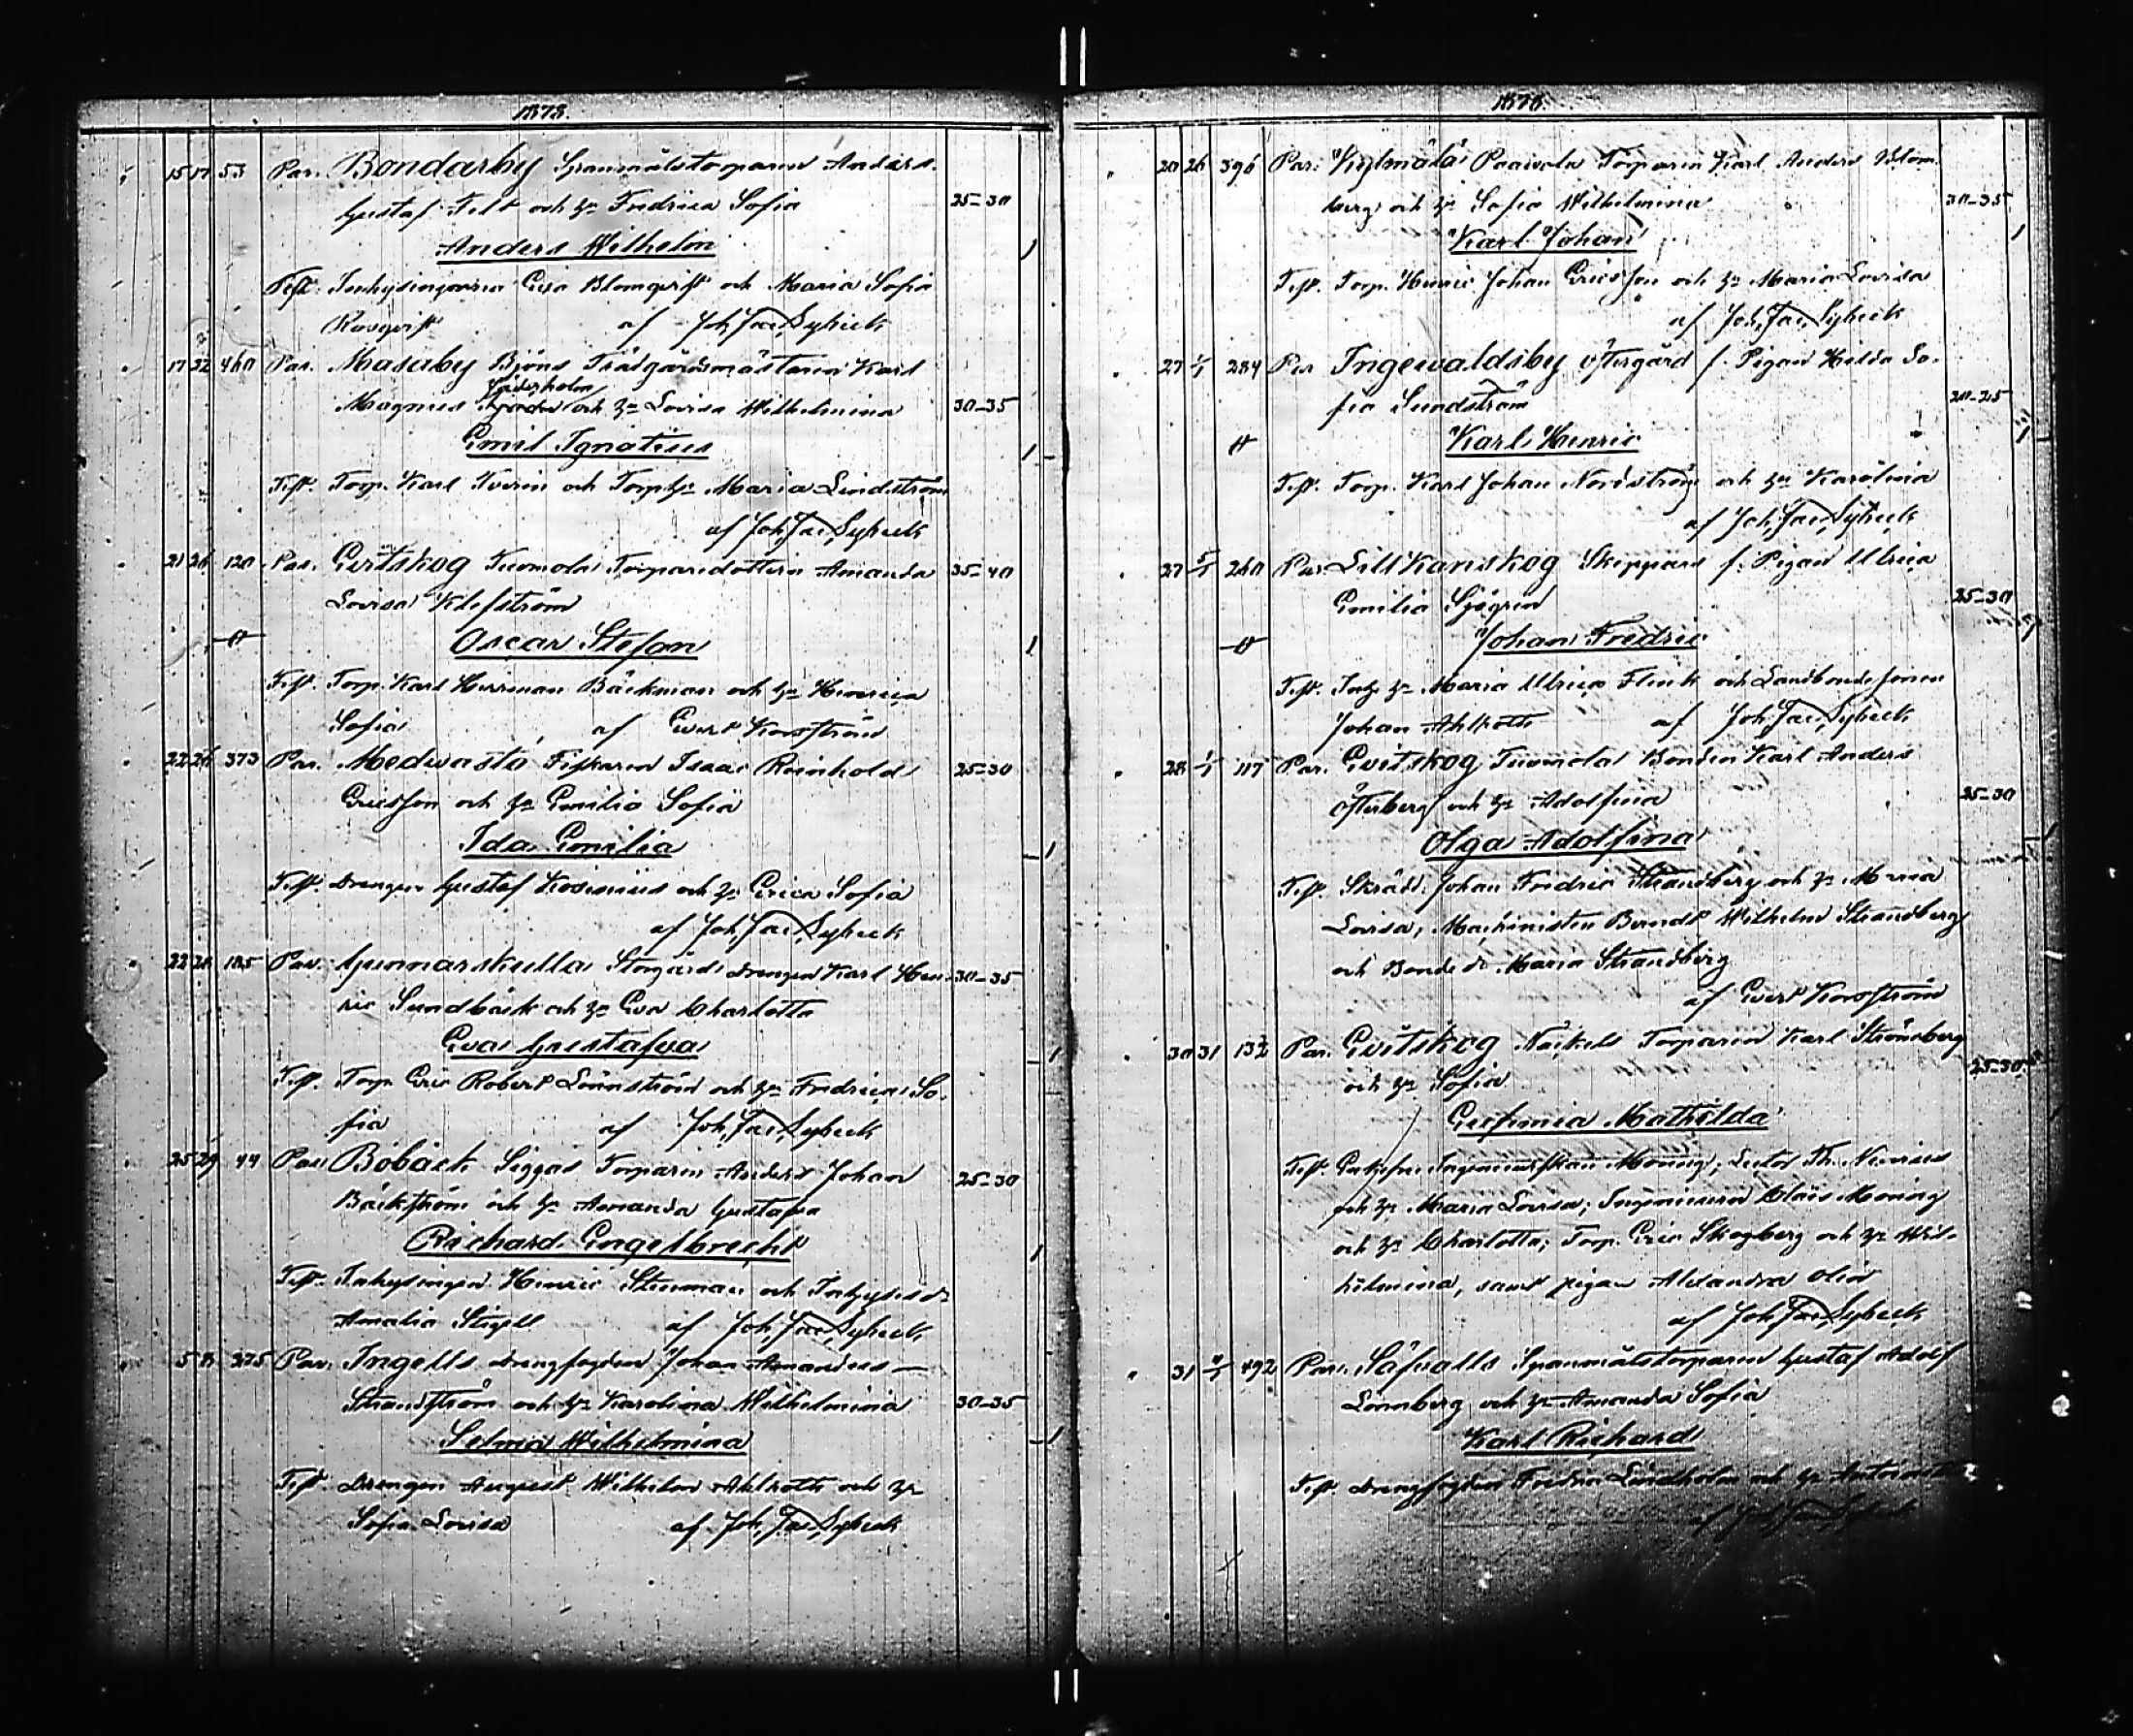 1878.
15 17 53 Par. Bondarby Spanmålstorparen Anders
Gustaf Felt och h:u Fredrica Sofia 25-30
Anders Wilhelm 1
Test. Inhysingarna Blomqvist och Maria Sofia
Rosqvist af Joh. Jac. Lybeck
17 460 Par. Masaby Björns Trädgårdsmästaren Karl
Magnus Söderholm och h:u Lovisa Wilhelmina 30-35
Emil Ignatius 1
Test. Torp. Karl Iverin och Torp.h:u Maria Lindström
af Joh. Jac. Lybeck
21 26 120 Par. Evitskog Tuomola Torparedottren Amanda 35-40
Lovisa Klefström
Oscar Stefan 1
Test. Torp. Karl Herrman Bäckman och h:u Henrica
Sofia af Evert Korsström
22 26 373 Par. Medvastö Fiskaren Isaac Reinhold 25-30
Ericsson och h:u Emilia Sofia
Ida Emilia 1
Test. Drengen Gustaf Rosenius och h:u Erica Sofia
af Joh. Jac. Lybeck
22 26 185 Par. Gunnarskulla Storgårds drengen Karl Hen- 30-35
ric Sundbäck och h:u Eva Charlotta
Eva Gustafva 1
Test. Torp. Eric Robert Lönnström och h:u Fredrica So-
fia af Joh. Jac. Lybeck
25 29 44 Par. Bobäck Siggas Torparen Anders Johan 25-30
Bäckström och h:u Amanda Gustafva
Richard Engelbrecht 1
Test. Inhysingen Henric Stenman och Inhysesd:r
Amalia Sigell af Joh. Jac. Lybeck
5 8 275 Par. Ingells drengfogden Johan Amandus
Strandström och h:u Karolina Wilhelmina 30-35
Selma Wilhelmina 1
Test. Drengen August Wilhelm Ahlroth och h:u
Sofia Lovisa af Joh. Jac. Lybeck
1878.
20 26 396 Par. Kylmälä Paavola Torparen Karl Anders Blom-
berg och h:u Sofia Wilhelmina 30-35
Karl Johan 1
Test. Torp. Henric Johan Ericsson och h:u Maria Lovisa
af Joh. Jac. Lybeck
27 284 Par. Ingewaldsby Östergård f. Pigan Hilda So-
fia Sundström 20-25
Karl Henric 1
Test. Torp. Karl Johan Nordström och h:u Karolina
af Joh. Jac. Lybeck
27 260 Par. Lillkanskog Skeppars f. Pigan Ulrica
Emilia Sjögren 25-30
Johan Fredric 1
Test. Inh. h:u Maria Ulrica Flink och Landbondesonen
Johan Ahlroth af Joh. Jac. Lybeck
28 117 Par. Evitskog Tuomola Bonden Karl Anders
Österberg och h:u Adolfina 25-30
Olga Adolfina 1
Test. Skrädd. Johan Fredric Strandberg och h:u Maria
Lovisa; Machinisten Berndt Wilhelm Strandberg
och Bonde d:r Maria Strandberg
af Evert Korsström
30 31 132 Par. Evitskog Näckels Torparen Karl Strömberg
och h:u Sofia 25-30
Eufemia Mathilda
Test. Enkefru Ingenieurskan Moring; Lector Th. Neovius
och h:u Maria Lovisa; Ingenieuren Claës Moring
och h:u Charlotta; Torp. Eric Skogberg och h:u Wil-
helmina, samt pigan Alexandra Olin
af Joh. Jac. Lybeck
31 492 Par. Säfvalls Spanmålstorparen Gustaf Adolf
Lönnberg och h:u Amanda Sofia
Karl Richard
Test. Drengfogden Fredric Lindholm och h:u
af Joh. Jac. Lybeck